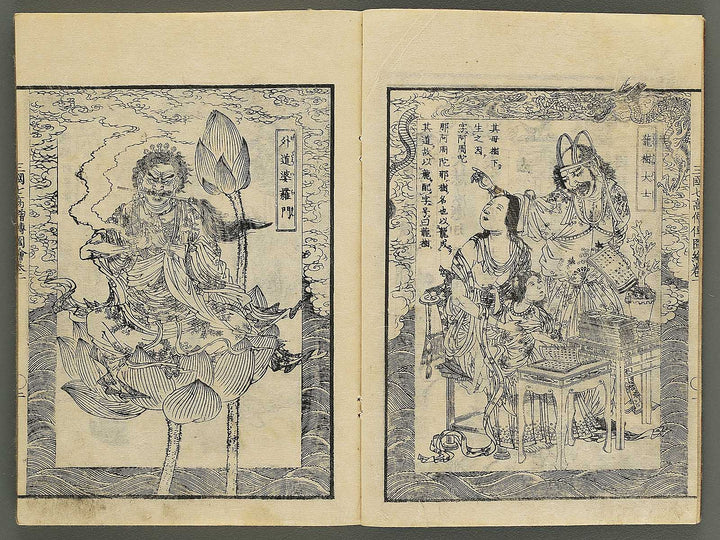 三國七高僧傳圖繪卷一
龍樹大士
其母樹下
生之因
字阿周陀
那阿周陀那樹名也以龍成
其道故以龍配字号曰龍樹
外道婆羅門
三國七高僧傳圖繪卷一